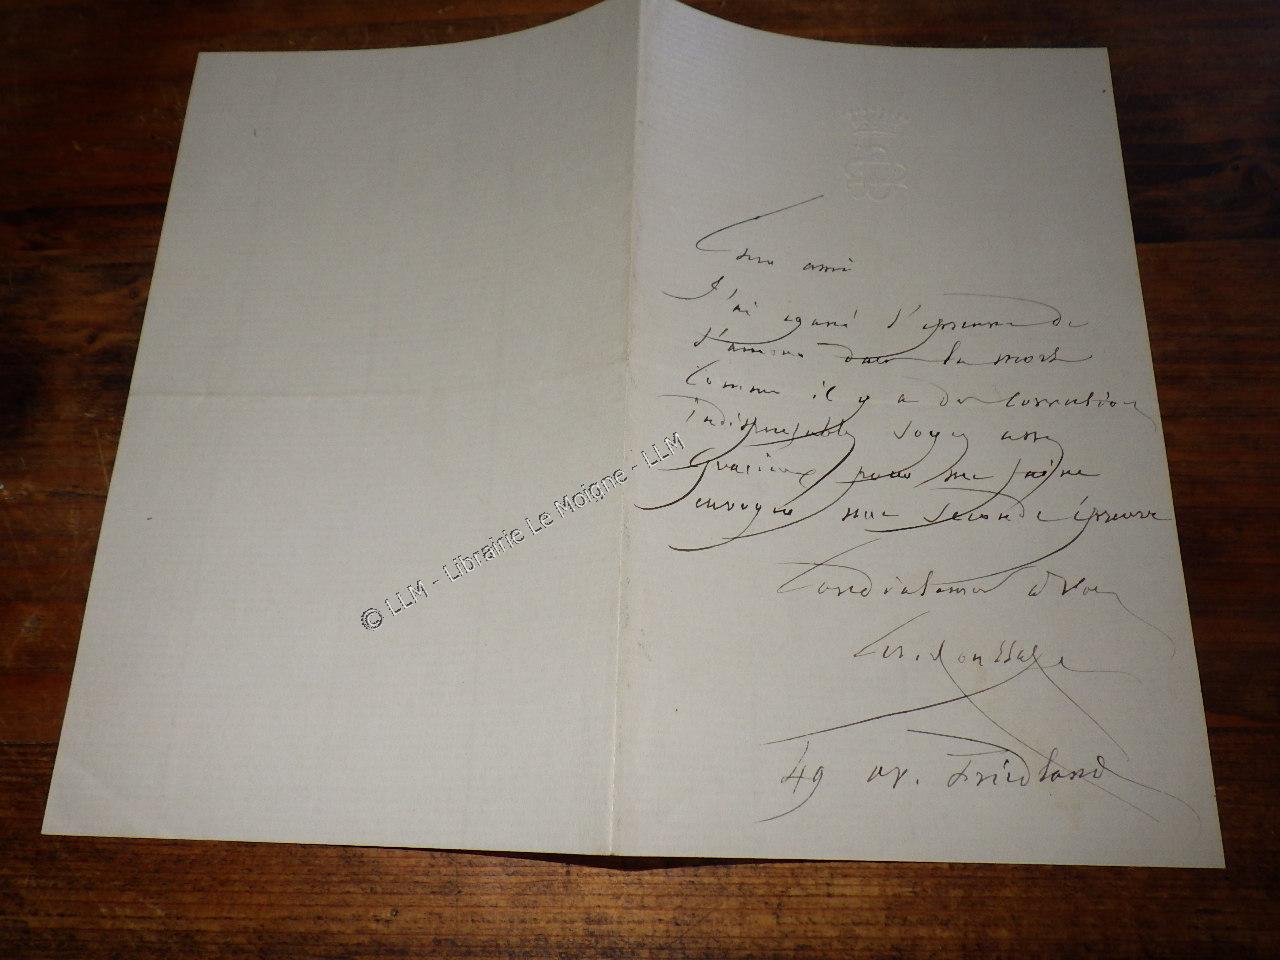 Cher ami
J'ai égaré l'épreuve de
l'amour dans la mort
Comme il y a des corrections
indispensables soyez assez
gracieux pour me faire
envoyer une seconde épreuve
Cordialement à vous
Ars. Houssaye
49 av. Friedland
© LLM - Librairie Le Moigne - LLM